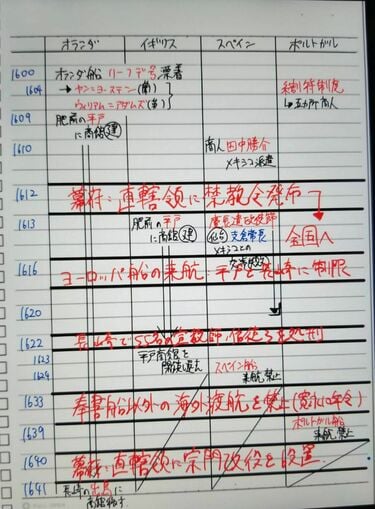 オランダ イギリス スペイン ポルトガル
1600 オランダ船 リーフデ号 漂着
1604 → ヤン=ヨーステン(蘭) 糸割符制度
ウィリアム=アダムズ(英)
1609 肥前の平戸
に商館 建
1610 商人 田中勝介
メキシコ派遣
1612 幕府: 直轄領に禁教令発布
1613 肥前の平戸 慶長遣欧使節
に商館 建 支倉常長 全国へ
メキシコとの
1616 ヨーロッパ船の来航 平戸と長崎に制限
1620
1622 長崎で55名の宣教師・信徒らを処刑
1623 平戸商館を
閉鎖
1624 スペイン船
来航禁止
1633 奉書船以外の海外渡航を禁止(寛永10年令)
1639 ポルトガル船
来航禁止
1640 幕府: 直轄領に宗門改役を設置
1641 長崎の出島に